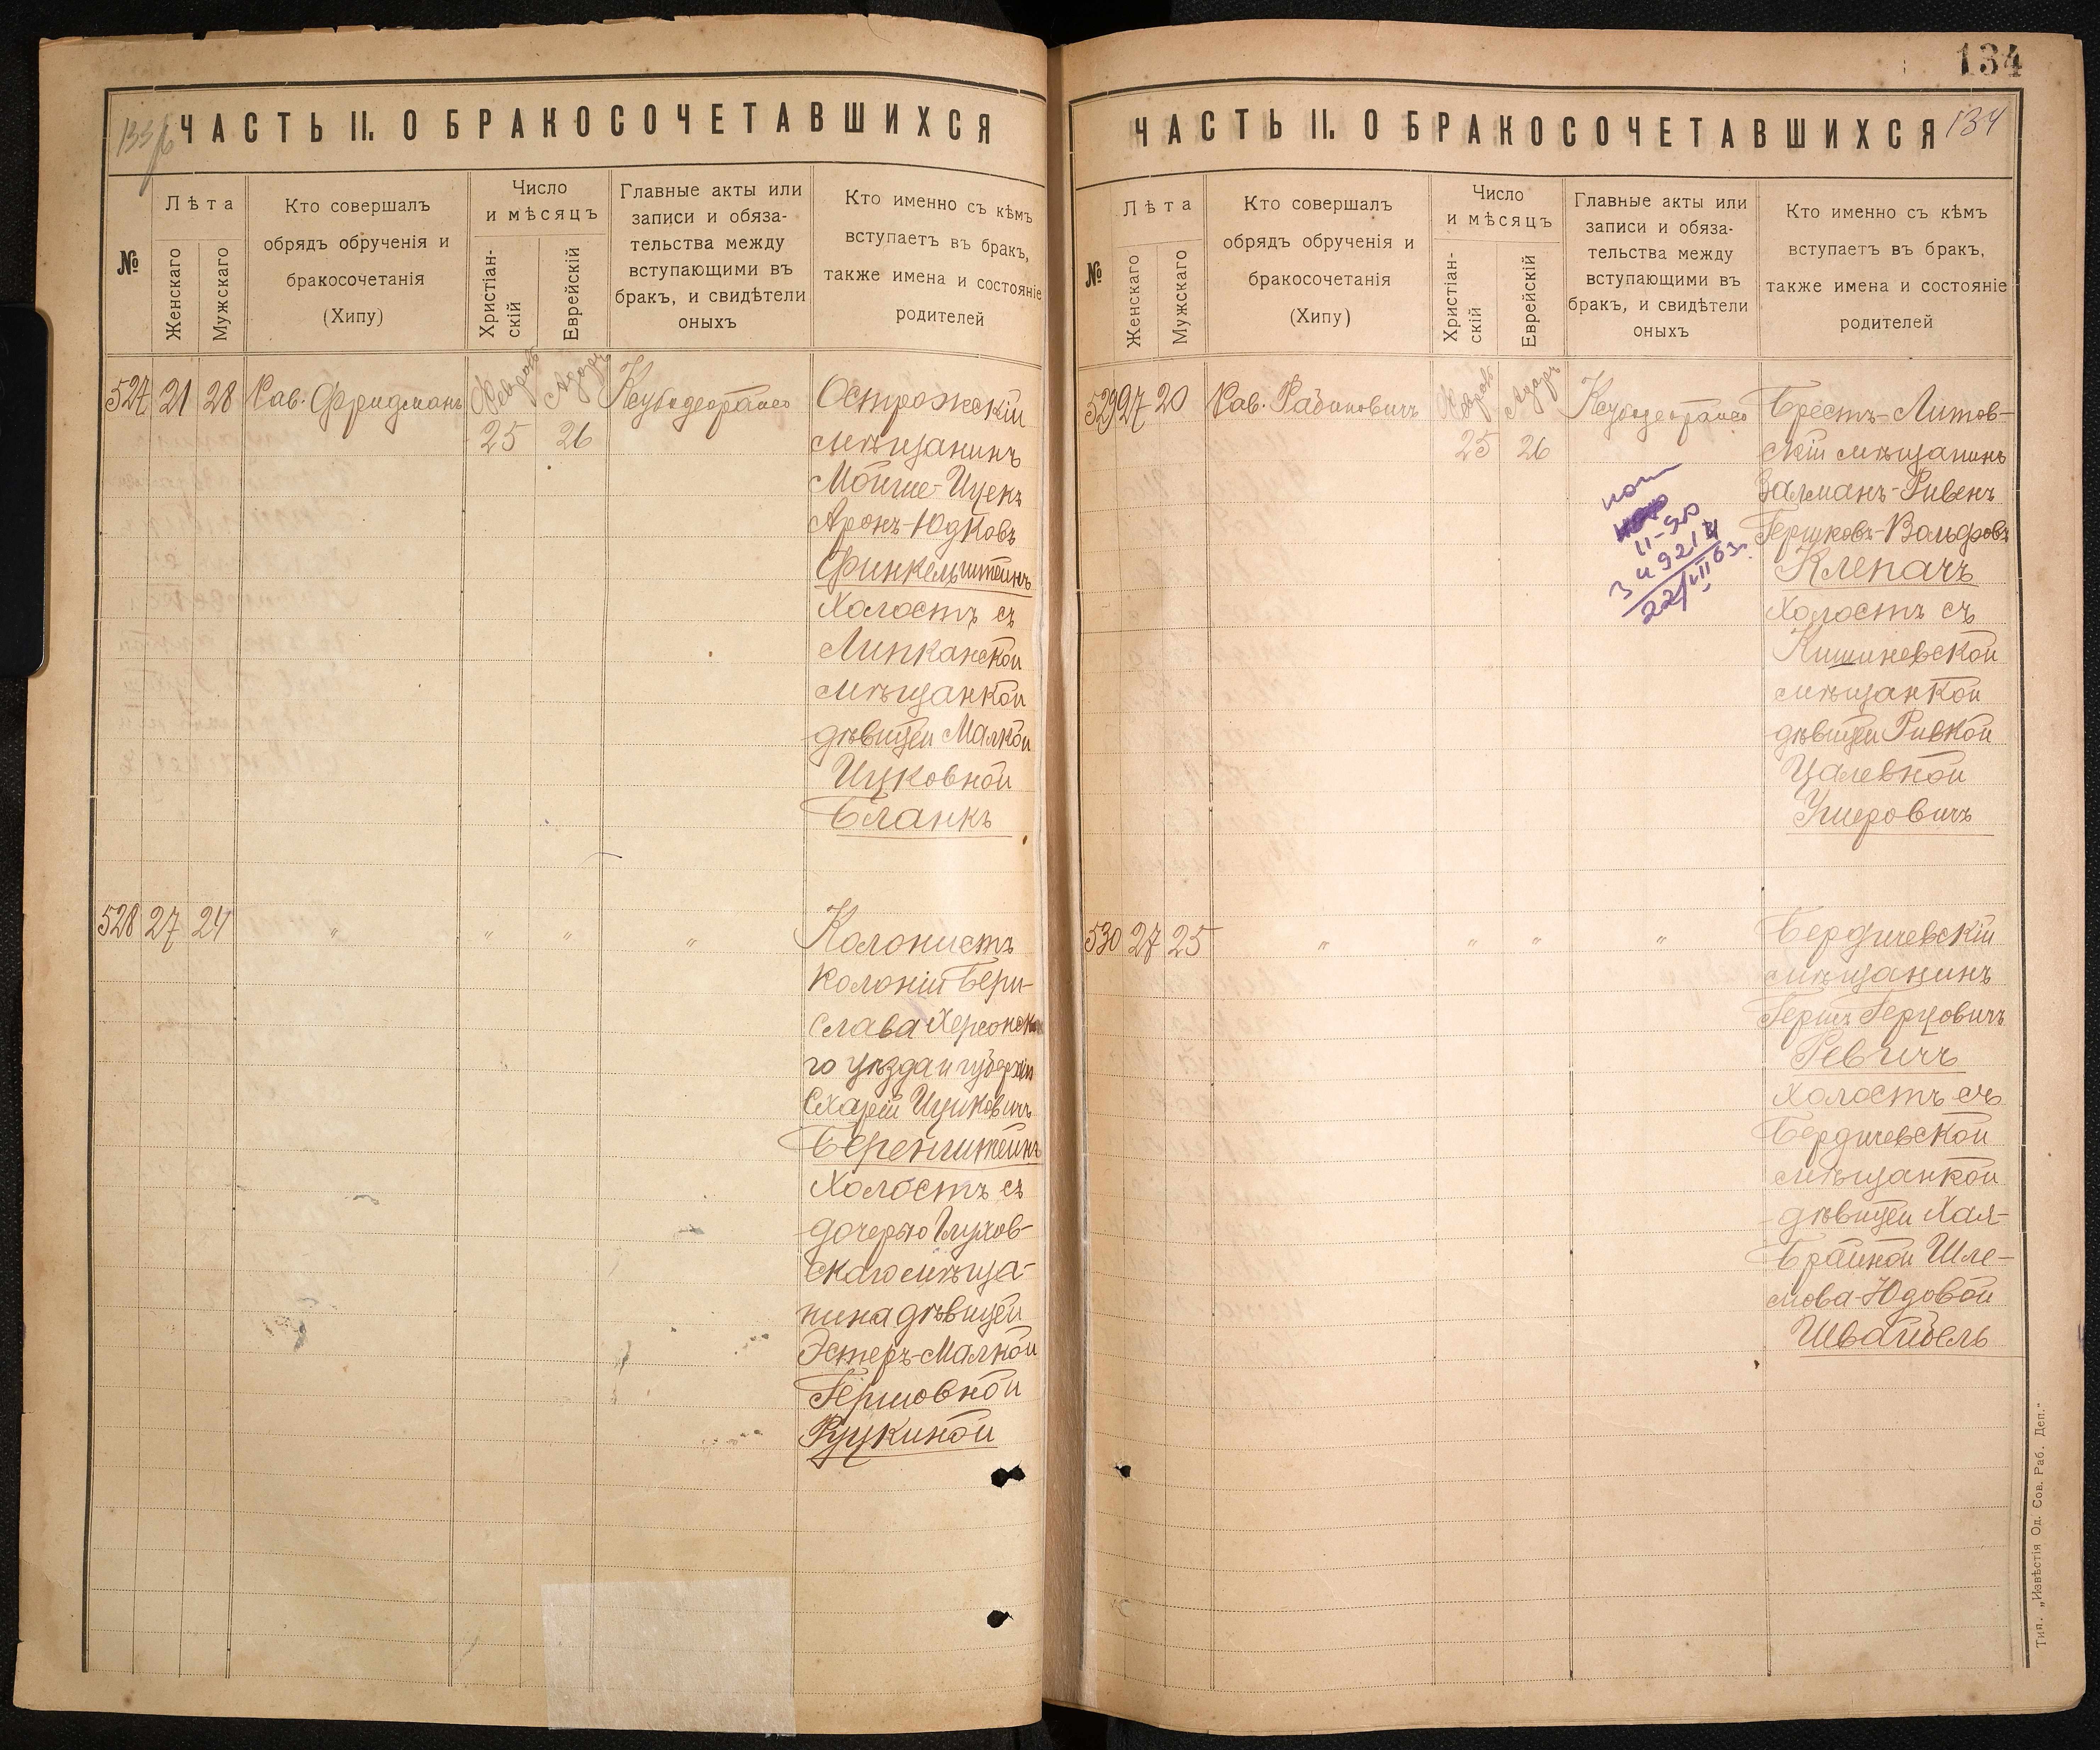 133 об
ЧАСТЬ II. О БРАКОСОЧЕТАВШИХСЯ
№
Лѣта
Женскаго
Мужскаго
Кто совершалъ
обрядъ обрученія и
бракосочетанія
(Хипу)
Число
и мѣсяцъ
Христіан-
скій
Еврейскій
Главные акты или
записи и обяза-
тельства между
вступающими въ
бракъ, и свидѣтели
оныхъ
Кто именно съ кѣмъ
вступаетъ въ бракъ,
также имена и состояніе
родителей
527 21 28 Рав. Фридманъ
Февраль
25
Адаръ
26
Острожскій
мѣщанинъ
Мойше-Ицекъ
Аронъ-Юдковъ
Финкельштейнъ
холостъ съ
Липканской
мѣщанкой
дѣвицей Малкой
Ицковной
Бланкъ
528 27 24 " " " "
Колонистъ
колоніи Бери-
слава Херсонска
го уѣзда и губерніи
Схарій Ицковичъ
Беренштейнъ
холостъ съ
дочерью Глухов-
скаго мѣща-
нина дѣвицей
Эстеръ-Малкой
Гершовной
Руцкиной
134
ЧАСТЬ II. О БРАКОСОЧЕТАВШИХСЯ
134
№
Лѣта
Женскаго
Мужскаго
Кто совершалъ
обрядъ обрученія и
бракосочетанія
(Хипу)
Число
и мѣсяцъ
Христіан-
скій
Еврейскій
Главные акты или
записи и обяза-
тельства между
вступающими въ
бракъ, и свидѣтели
оныхъ
Кто именно съ кѣмъ
вступаетъ въ бракъ,
также имена и состояніе
родителей
529 27 20 Рав. Рабиновичъ
Февраль
25
Адаръ
26
Брестъ-Литов-
скій мѣщанинъ
Залманъ-Рувенъ
Гершковъ-Вольфовъ
Клепачъ
холостъ съ
Кишиневской
мѣщанкой
дѣвицей Ривкой
Цалевной
Ушеровичъ
530 27 25 " " " "
Бердичевскій
мѣщанинъ
Гершъ Герцовичъ
Ревичъ
холостъ съ
Бердичевской
мѣщанкой
дѣвицей Хая-
Брайной Шле-
мова-Юдовой
Швайбель
Тип. „Извѣстія Од. Сов. Раб. Деп."